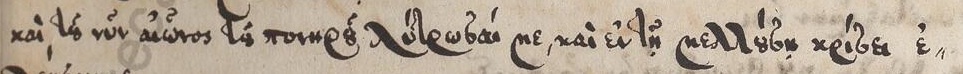 καὶ τοῦ νῦν αἰῶνος τοῦ πονηροῦ λυτρωθῆναί με, καὶ ἐν τῇ μελλούσῃ κρίσει ἐ